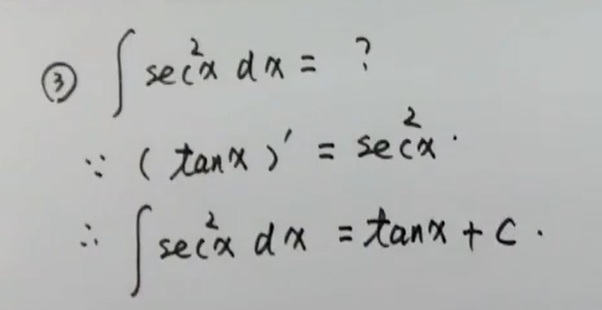 ③ ∫ sec²x dx = ?
∵ (tanx)′ = sec²x.
∴ ∫ sec²x dx = tanx + C.